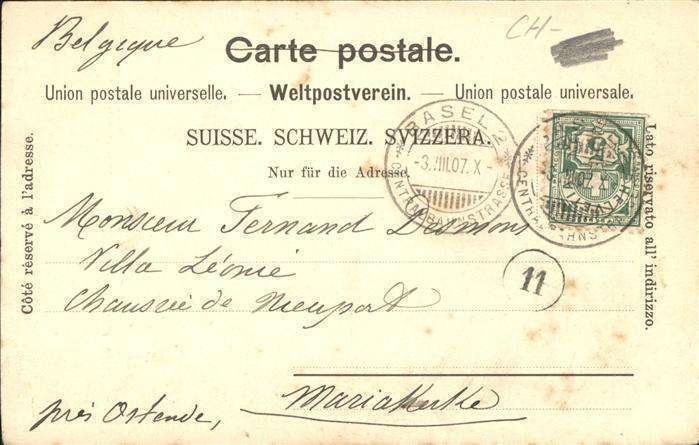 Belgique
CH-
Carte postale.
Union postale universelle. — Weltpostverein. — Union postale universale.
SUISSE. SCHWEIZ. SVIZZERA.
Nur für die Adresse
Côté réservé à l'adresse.
Lato riservato all' indirizzo.
BASEL 2
-3.VIII.07.X-
CENTRALBAHNSTRASSE
HELVETIA
5
Monsieur Fernand Desmons
Villa Léonie
Chaussée de Nieuport
11
Mariakerke
près Ostende,